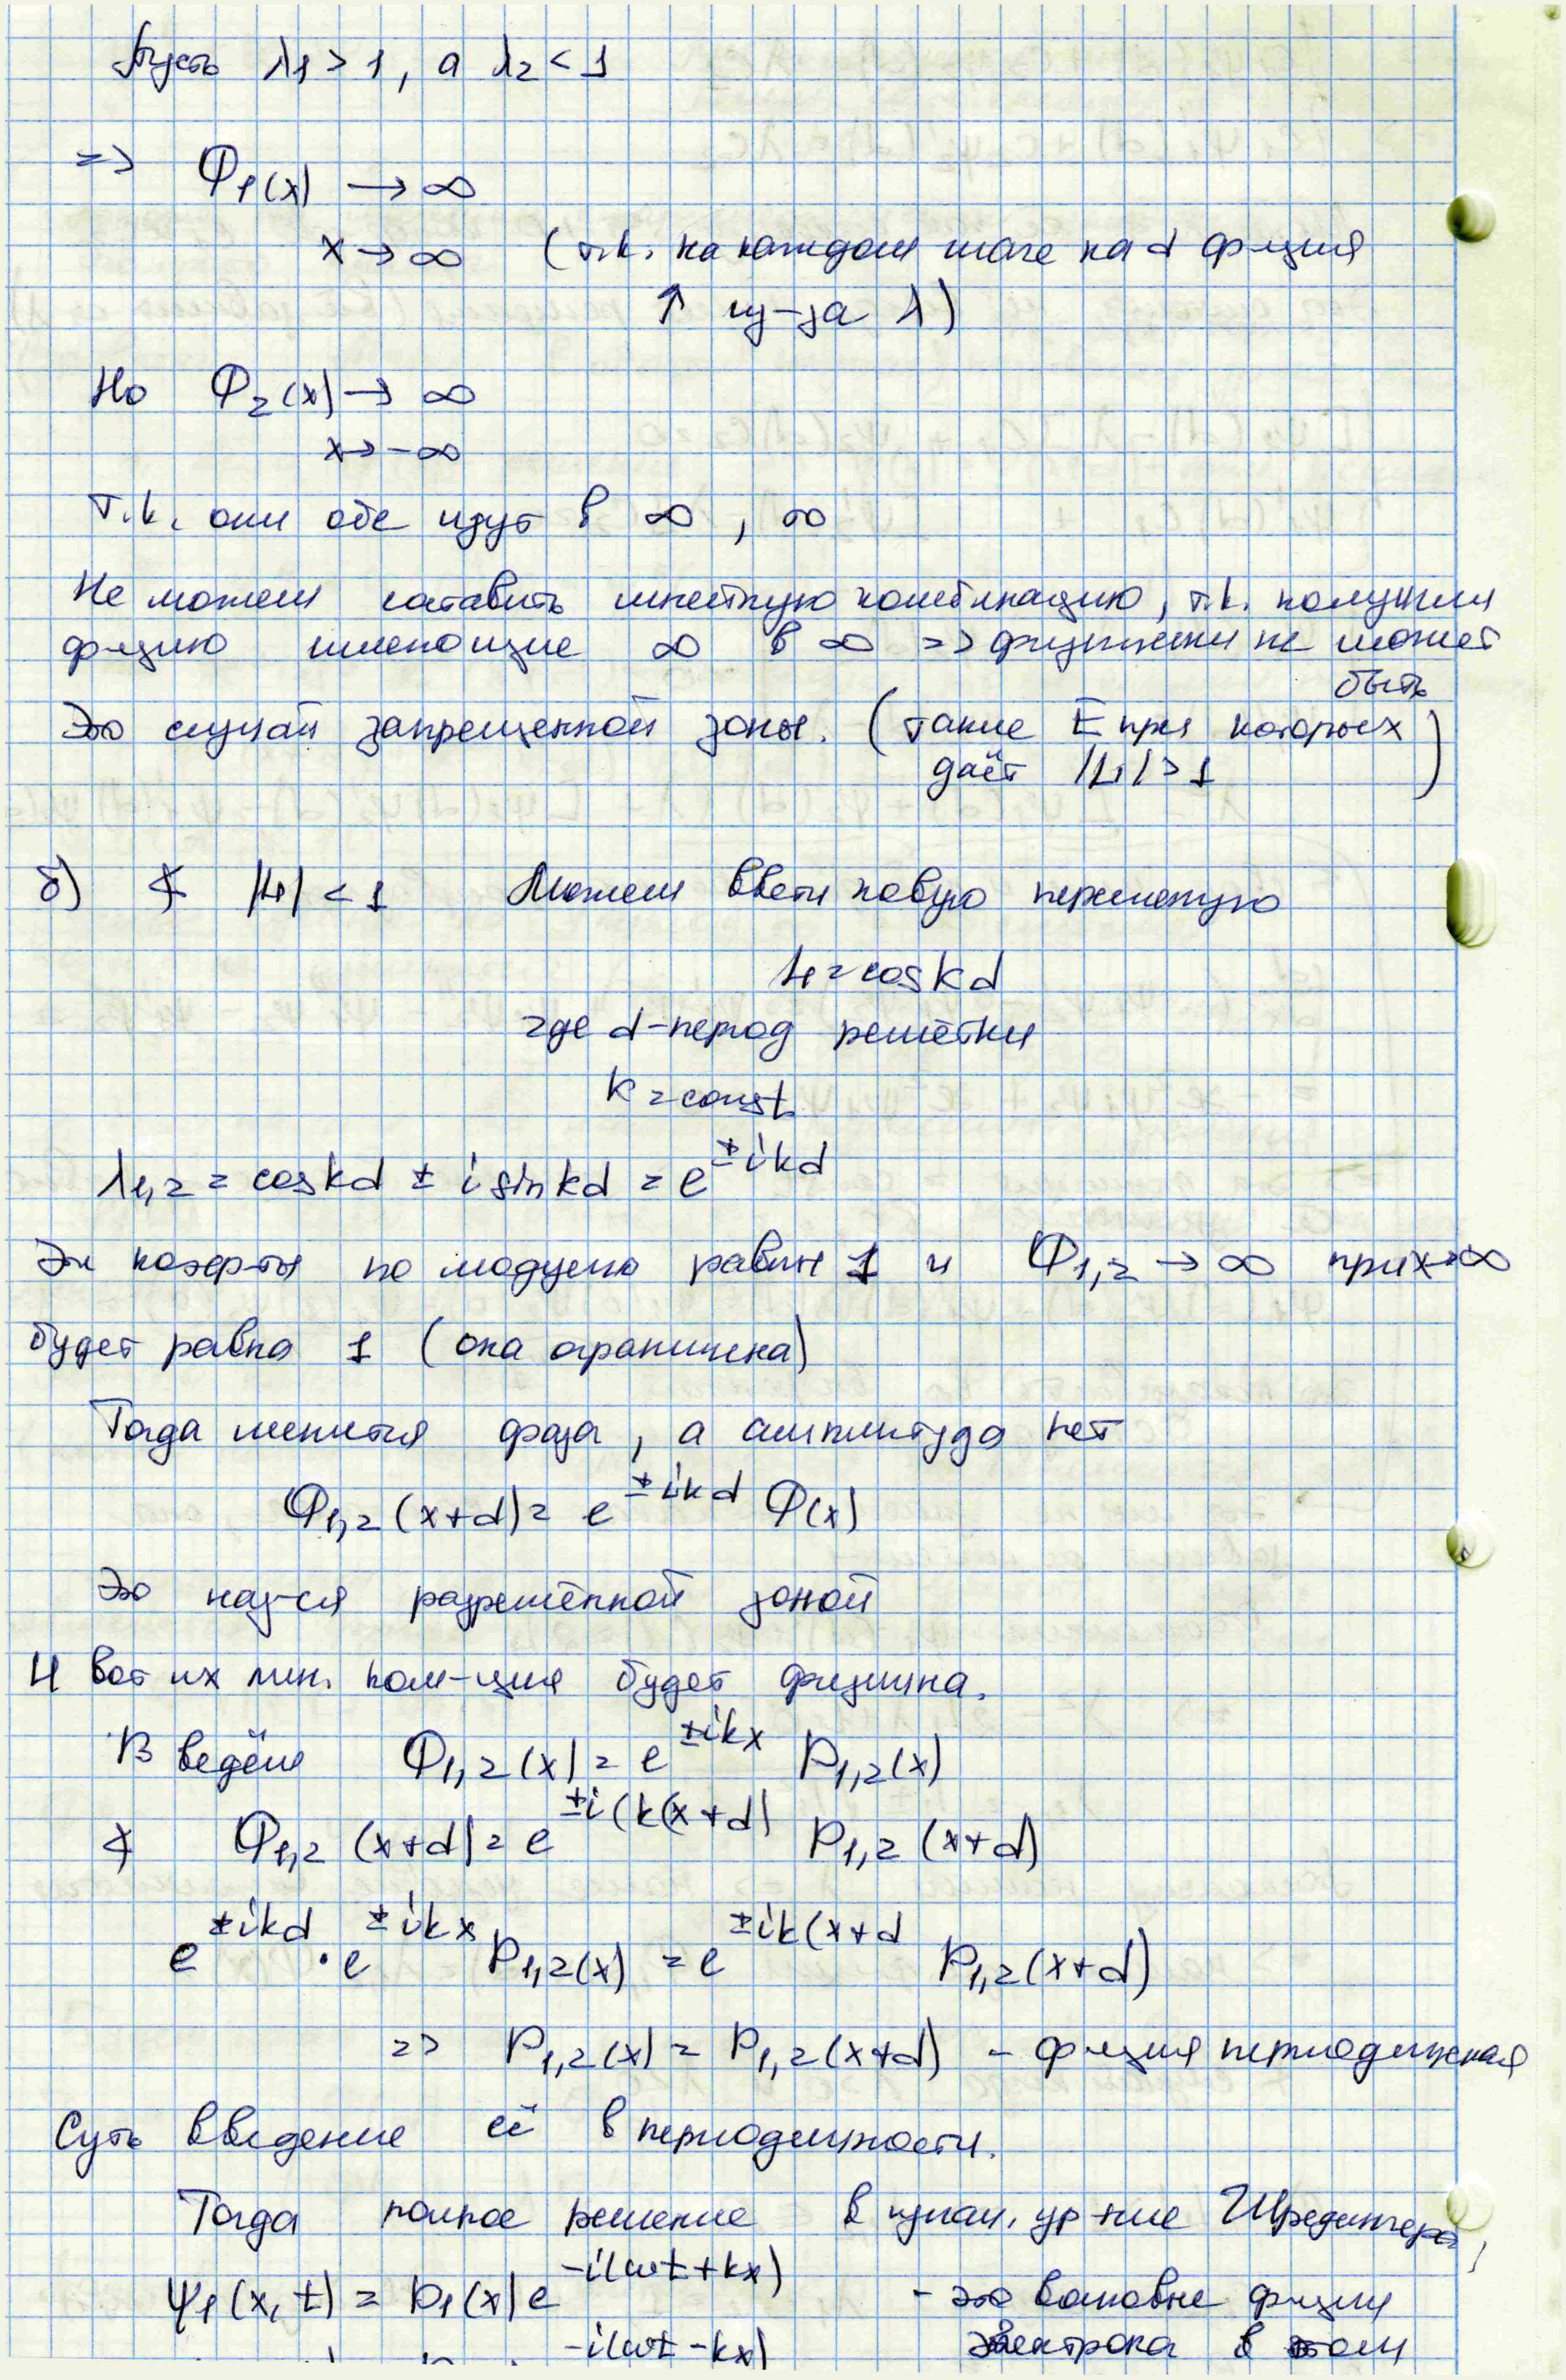 Пусть λ1 > 1, а λ2 < 1
=> Φ1(x) → ∞
x → ∞ (т.к. на каждом шаге на d ф-ция
↑ из-за λ)
Но Φ2(x) → ∞
x → -∞
Т.к. они обе идут в ∞, ∞
Не можем составить линейную комбинацию, т.к. получим
ф-цию имеющие ∞ в ∞ => физически не может
быть
Это случай запрещенной зоны. (такие E при которых
даёт |L1| > 1)
б) ∢ |L1| < 1 Можем ввети новую переменную
L1 = cos kd
где d - период решётки
k = const
λ1,2 = cos kd ± i sin kd = e^{±ikd}
Эти коэф-ты по модулю равны 1 и Φ1,2 → ∞ при x→∞
будет равна 1 (она ограничена)
Тогда меняется фаза, а амплитуда нет
Φ1,2 (x+d) = e^{±ikd} Φ(x)
Это наз-ся разрешённой зоной
И вот их лин. ком-ция будет физична.
Введём Φ1,2(x) = e^{±ikx} P1,2(x)
∢ Φ1,2 (x+d) = e^{±i(k(x+d)} P1,2 (x+d)
e^{±ikd} · e^{±ikx} P1,2(x) = e^{±ik(x+d} P1,2(x+d)
=> P1,2(x) = P1,2(x+d) - ф-ция периодическая
Суть введение её в периодичности.
Тогда полное решение в ур-ние Шредингера,
ψ1(x,t) = p1(x) e^{-i(ωt+kx)} - это волновые ф-ции
e^{-i(ωt-kx)} электрона в этом